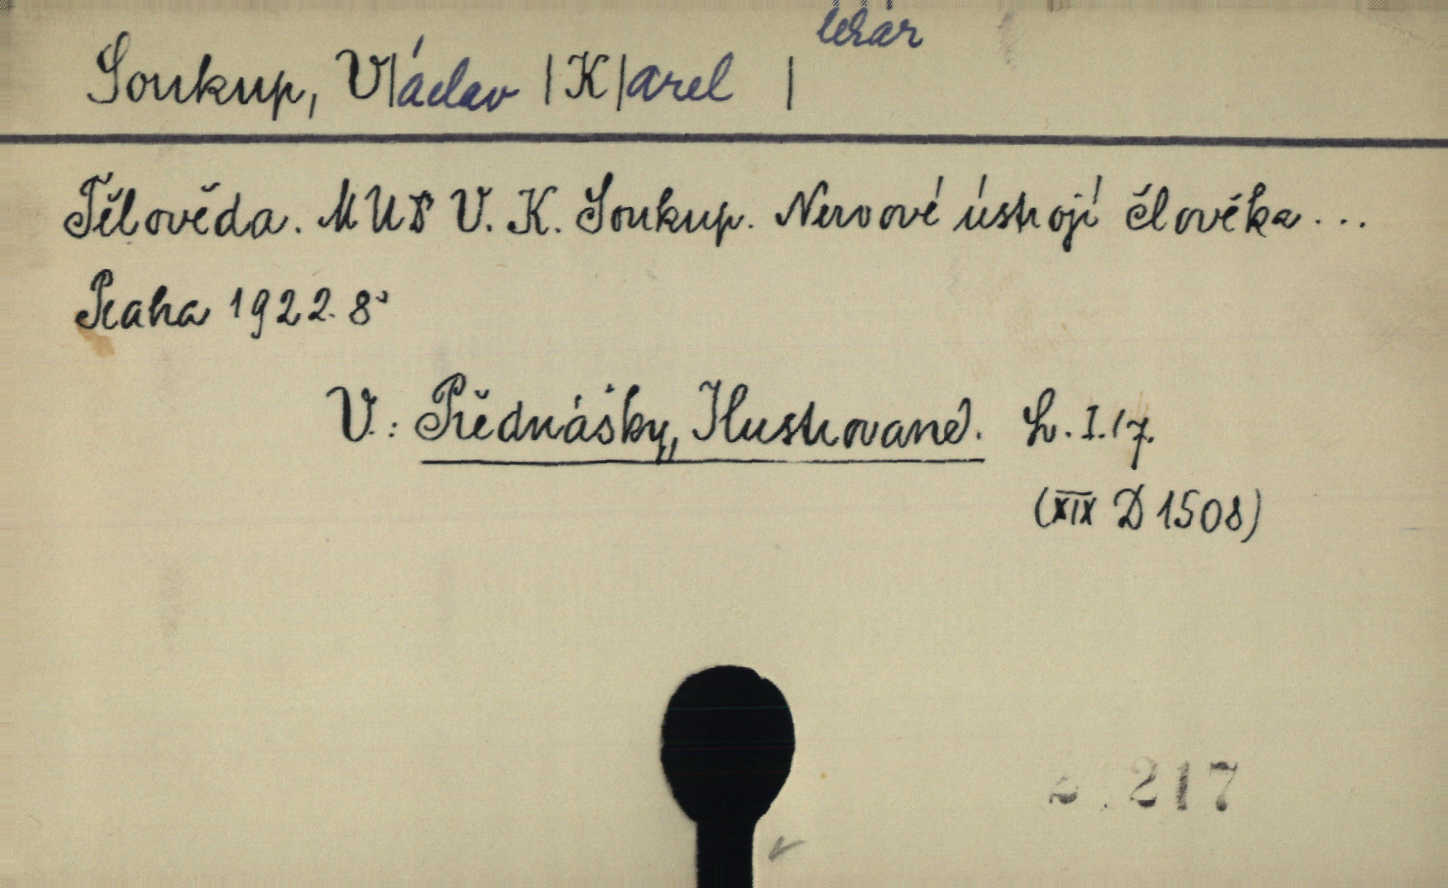 lékař
Soukup, V|áclav |K|arel |
Tělověda. MUDr V. K. Soukup. Nervové ústrojí člověka...
Praha 1922. 8°
V.: Přednášky, Ilustrované. L. I. 17.
(XIX D 1508)
217